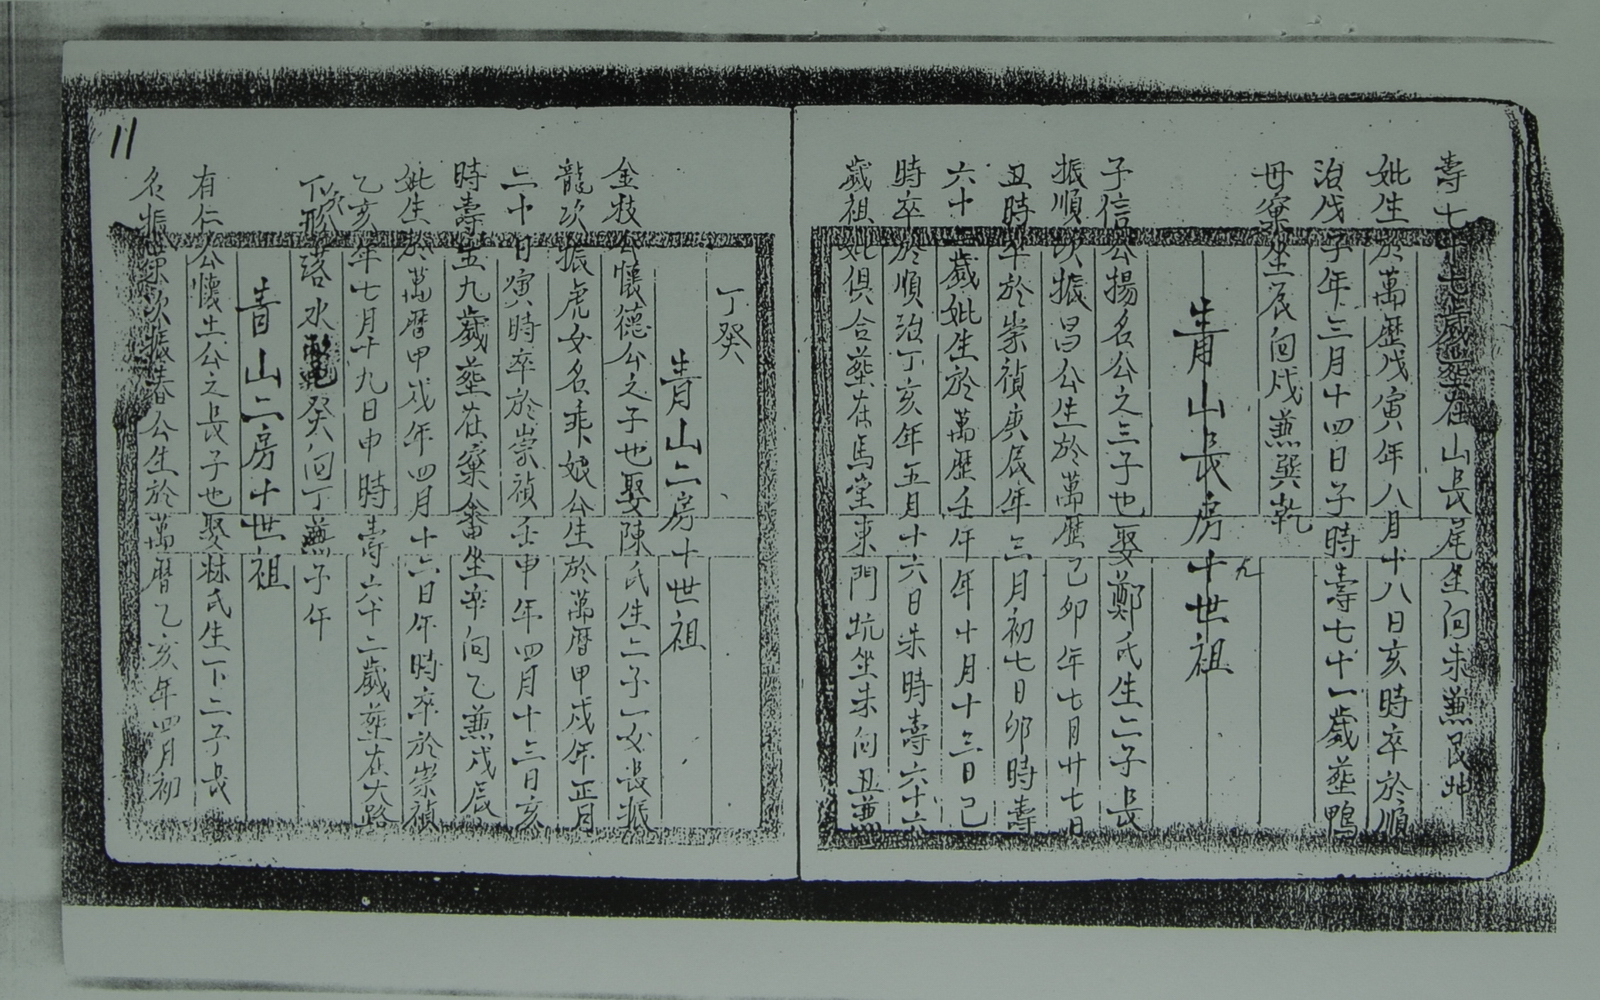 壽七十七歲塟在山長尾坐向未兼艮坤
妣生於萬歷戊寅年八月十八日亥時卒於順
治戊子年三月十四日子時壽七十一歲塟鴨
母寮坐辰向戌兼巽乾
青山長房十世祖
九
子信公揚名公之三子也娶鄭氏生二子長
振順次振昌公生於萬歷己卯年七月廿七日
丑時卒於崇禎庚辰年三月初七日卯時壽
六十二歲妣生於萬歷壬午年十月十三日己
時卒於順治丁亥年五月十六日朱時壽六十六
歲祖妣俱合塟在馬堂東門坑坐未向丑兼
丁癸
青山二房十世祖
金枝公懷德公之子也娶陳氏生二子一女長振
龍次振虎女名乖娘公生於萬曆甲戌年正月
二十日寅時卒於崇禎壬申年四月十三日亥
時壽五九歲塟在寮畬坐辛向乙兼戊辰
妣生於萬曆甲戌年四月十六日午時卒於崇禎
乙亥年七月十九日申時壽六十二歲塟在大路
下形落水癸向丁兼子午
青山二房十世祖
有仁公懷生公之長子也娶林氏生下二子長
名振次振春公生於萬曆乙亥年四月初
11